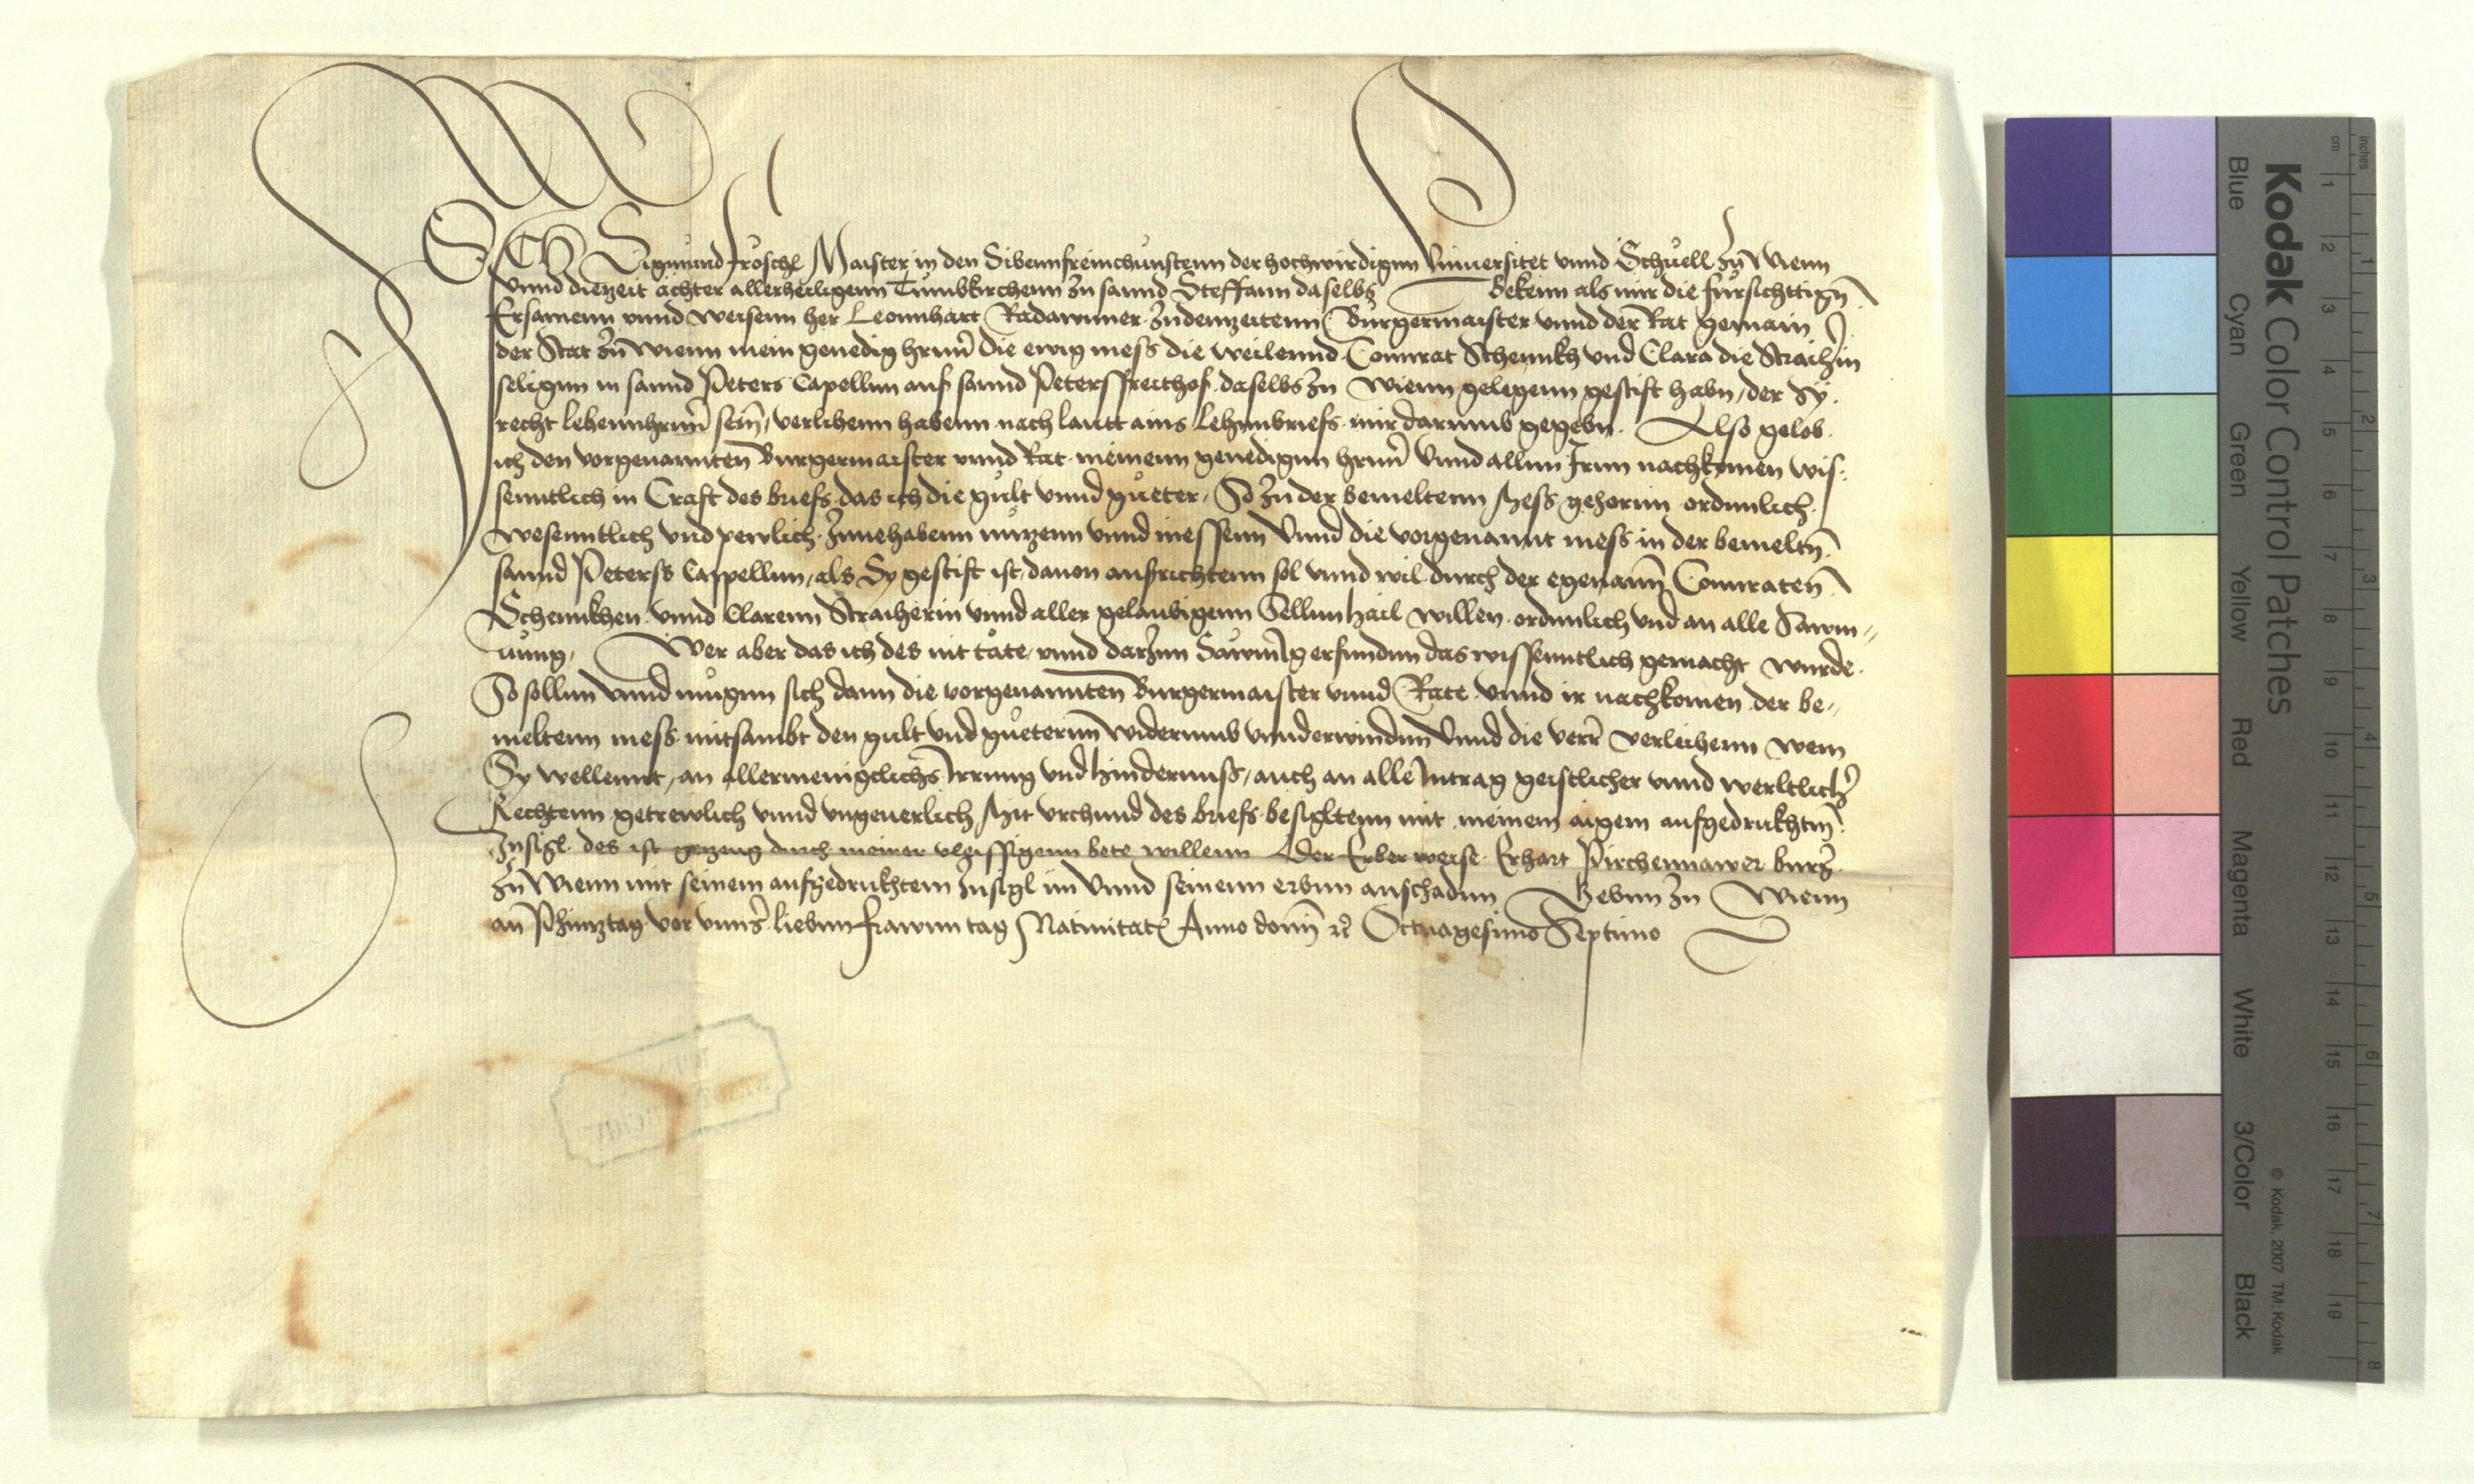 ICH Sigmund fröschl Maister in den Sibennfreinchunstenn der hochwirdigen Vniuersitet vnnd Schuell zu Wienn
vnnd diezeit achter allerheiligenn Tumbkirchenn zu sannd Steffann daselbs Bekenn als mir die fursichttign
Ersamenn vnnd weisenn her Leonnhart Radawnner zudenzeitenn Burgermaister vnnd der Rat gemain
der Stat zu Wienn mein genedig hrnn die ewig mess die weilennd Connrat Schennkh vnd Clara die
seligen in sannd Peters Capellnn auf sannd Petersfreithof daselbs zu Wienn gelegenn gestift habn, der Sy
recht lehennhrnn sein, verlihenn habenn nach lautt ains Lehnnbriefs mir darumb gegebn. Also gelob
ich den vorgenannten Burgermaister vnnd Rat meinenn genedignn hrnn vnnd allnn Irnn nachkomen wis-
senntlich in Craft des briefs das ich die gult vnnd gueter, So zu der bemeltenn Mess gehornn ordnnlich
wesenntlich vnd pewlich Innehabenn nuzenn vnnd niessenn Vnnd die vorgenannt mess in der bemeltn
sannd Peterss Cappellnn, als Sy gestift ist, dauon ausrichtenn sol vnnd wil durch der egenann Connraten
Schennkhen vnnd Clarenn vnnd aller gelaubigenn Sellnn hail willen ordnnlich vnd an alle Sawm-
nung, Wer aber das ich des nit täte, vnnd darInn Sawmig erfundnn das wissenntlich gemacht wurde
So sollnn vnnd mugnn sich dann die vorgenannten Burgermaister vnnd Rate vnnd ir nachkomen der be-
meltenn mess mitsambt den gult vnd gueternn widerumb vnnderwindnn Vnnd die verr verleihenn wem
Sy wellennt, an allermenigclichs Irrung vnd hindernuss, auch an alle Intrag geistlicher vnnd werltlicher
Rechtenn getrewlich vnnd vngeuerlich Mit vrchund des briefs besigltenn mit meinem aigem aufgedrukhtm
Insigl des ist gezeug durch meiner vleissigenn bete willenn Der Erber weise Erhart Pirchennawer burger
zu Wienn mit seinem aufgedrukhtem Insigl im Vnnd seinenn erbnn anschadnn Gebnn zu Wienn
an Phinztag vor vnnser liebnn frawnn tag Natiuitatis Anno domini Octuagesimo Septimo